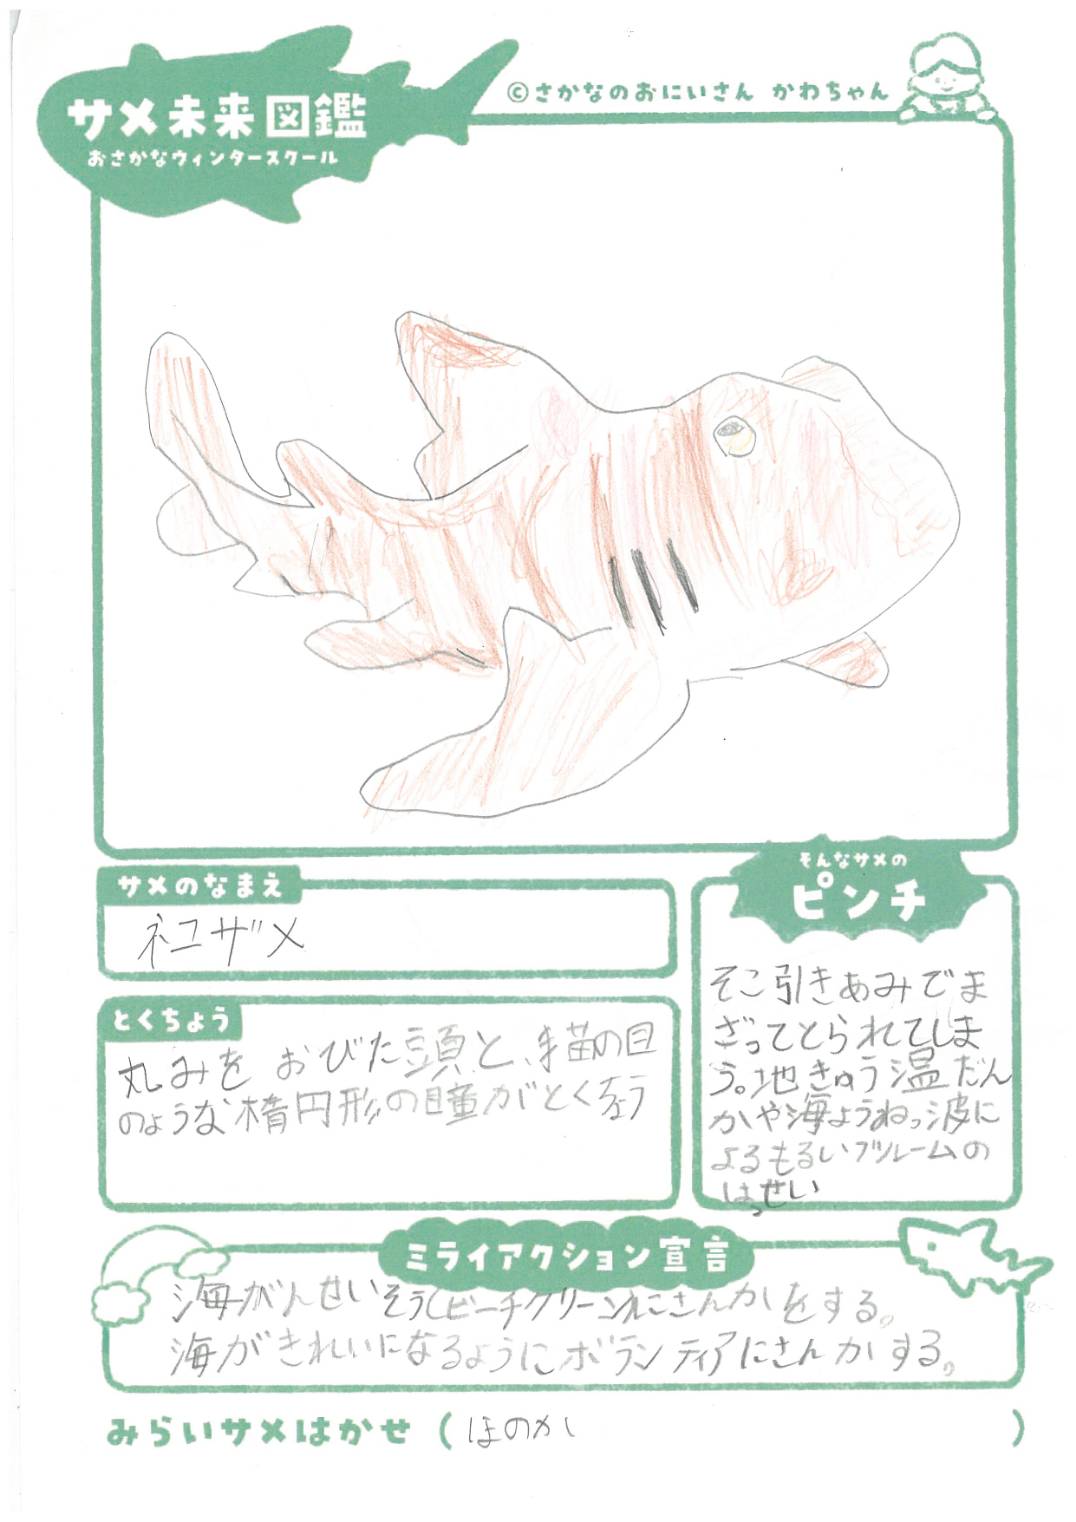 サメ未来図鑑
おさかなウィンタースクール
©さかなのおにいさん かわちゃん
サメのなまえ
ネコザメ
とくちょう
丸みをおびた頭と、猫の目
のような楕円形の瞳がとくちょう
そんなサメの
ピンチ
そこ引きあみでま
ざってとられてしま
う。地きゅう温だん
かや海ようねっ波に
よるもるいブルームの
はっせい
ミライアクション宣言
海がんせいそう(ビーチクリーン)にさんかをする。
海がきれいになるようにボランティアにさんかする。
みらいサメはかせ(ほのか)